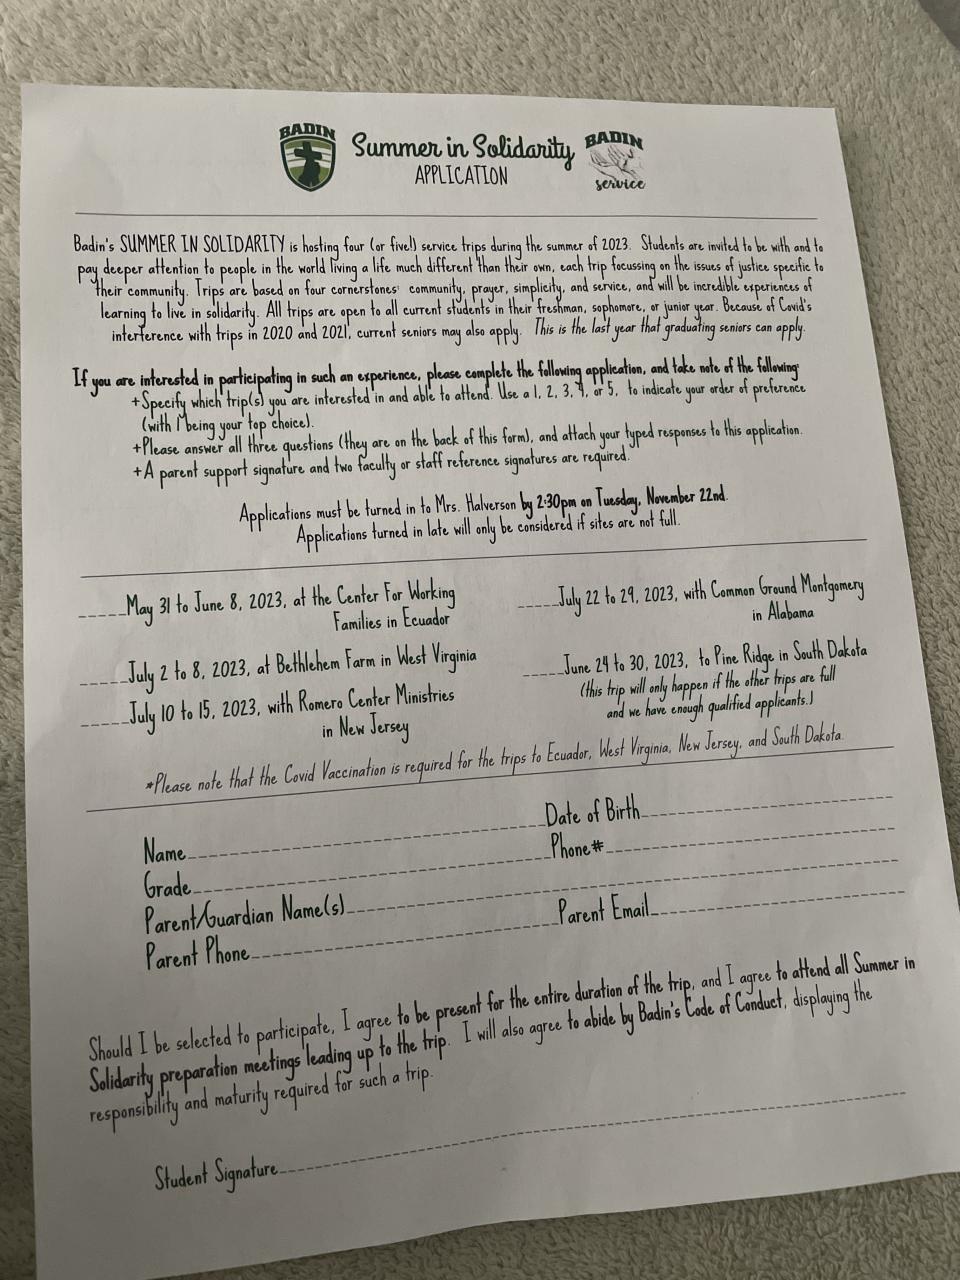 BADIN
Summer in Solidarity
APPLICATION
BADIN
service
Badin's SUMMER IN SOLIDARITY is hosting four (or five!) service trips during the summer of 2023. Students are invited to be with and to
pay deeper attention to people in the world living a life much different than their own, each trip focussing on the issues of justice specific to
their community. Trips are based on four cornerstones: community, prayer, simplicity, and service, and will be incredible experiences of
learning to live in solidarity. All trips are open to all current students in their freshman, sophomore, or junior year. Because of Covid's
interference with trips in 2020 and 2021, current seniors may also apply. This is the last year that graduating seniors can apply.
If you are interested in participating in such an experience, please complete the following application, and take note of the following:
+Specify which trip(s) you are interested in and able to attend. Use a 1, 2, 3, 4, or 5, to indicate your order of preference
(with 1 being your top choice).
+Please answer all three questions (they are on the back of this form), and attach your typed responses to this application.
+A parent support signature and two faculty or staff reference signatures are required.
Applications must be turned in to Mrs. Halverson by 2:30pm on Tuesday, November 22nd.
Applications turned in late will only be considered if sites are not full.
_____May 31 to June 8, 2023, at the Center For Working
Families in Ecuador
_____July 2 to 8, 2023, at Bethlehem Farm in West Virginia
_____July 10 to 15, 2023, with Romero Center Ministries
in New Jersey
_____July 22 to 29, 2023, with Common Ground Montgomery
in Alabama
_____June 24 to 30, 2023, to Pine Ridge in South Dakota
(this trip will only happen if the other trips are full
and we have enough qualified applicants.)
*Please note that the Covid Vaccination is required for the trips to Ecuador, West Virginia, New Jersey, and South Dakota.
Name____ Date of Birth____
Grade____ Phone#____
Parent/Guardian Name(s)____
Parent Phone____ Parent Email____
Should I be selected to participate, I agree to be present for the entire duration of the trip, and I agree to attend all Summer in
Solidarity preparation meetings leading up to the trip. I will also agree to abide by Badin's Code of Conduct, displaying the
responsibility and maturity required for such a trip.
Student Signature____